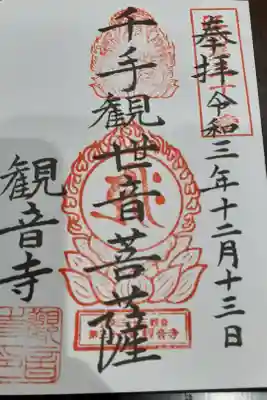 奉拝令和三年十二月十三日
千手観世音菩薩
観音寺